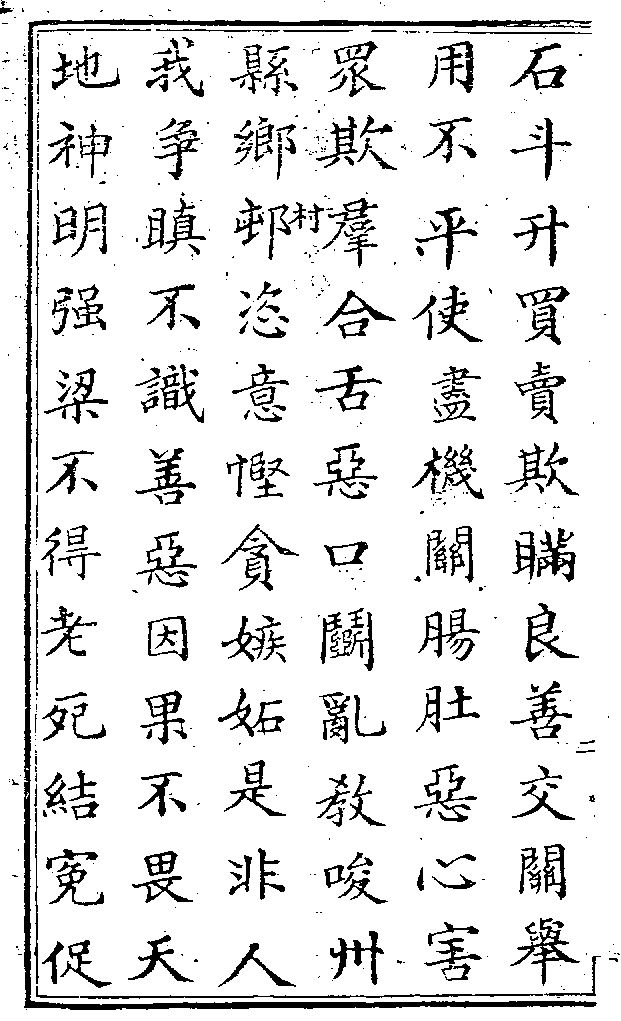 石斗升買賣欺瞞良善交關舉
用不平使盡機關腸肚惡心害
眾欺羣合舌惡口鬭亂教唆州
縣鄉邨村恣意慳貪嫉妬是非人
我爭瞋不識善惡因果不畏天
地神明强梁不得老死結寃促
二